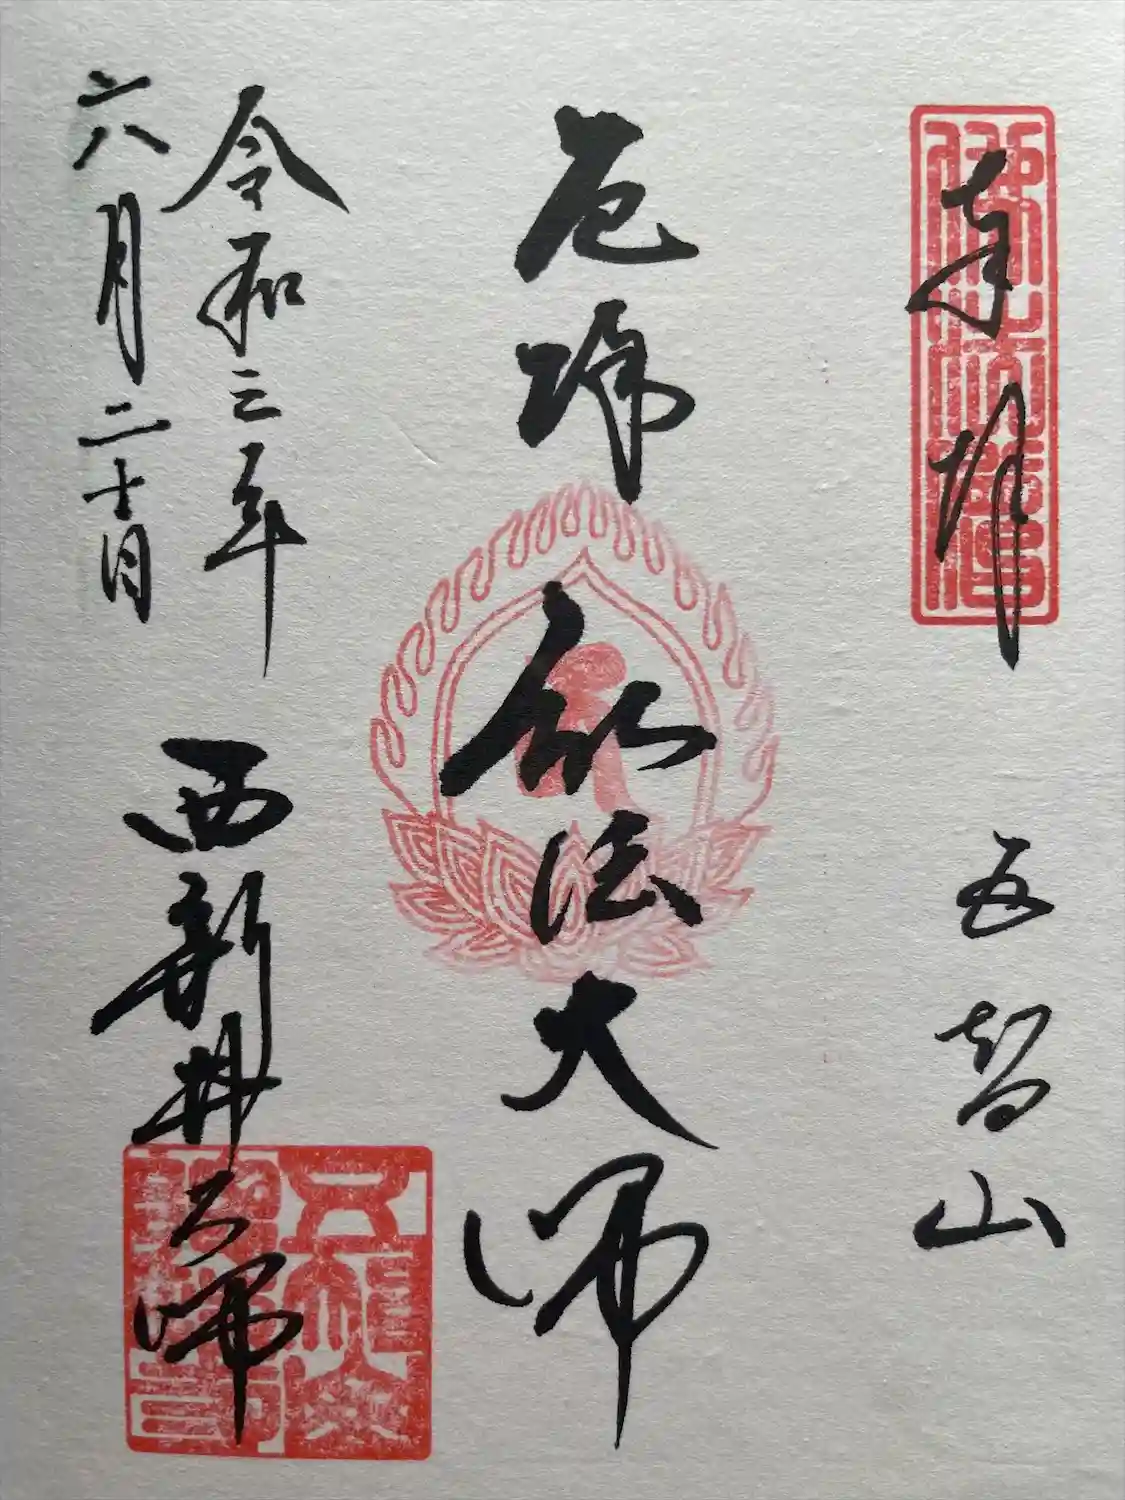 奉拝
五智山
厄除弘法大師
令和三年
六月二十日
西新井大師
五智山
總持寺